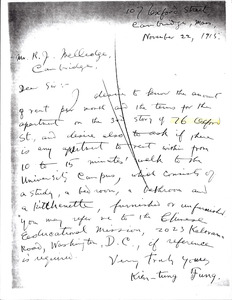 107 Oxford Street
Cambridge, Mass.
November 22, 1915.
Mr. R. J. Melledge,
Cambridge,
Dear Sir:-
I desire to know the amount
of rent per month and the terms for the
apartment on the 3rd story of 76 Oxford
St, and desire also to ask if there
is any apartment to rent within from
10 to 15 minutes' walk to the
University Campus, which consists of
a study, a bed room, a bathroom and
a kitchenette, furnished or unfurnished
You may refer me to the Chinese
Educational Mission, 2023 Kalorama
Road, Washington, D.C., if reference
is required.
Very truly yours,
Kien-tung Fung.